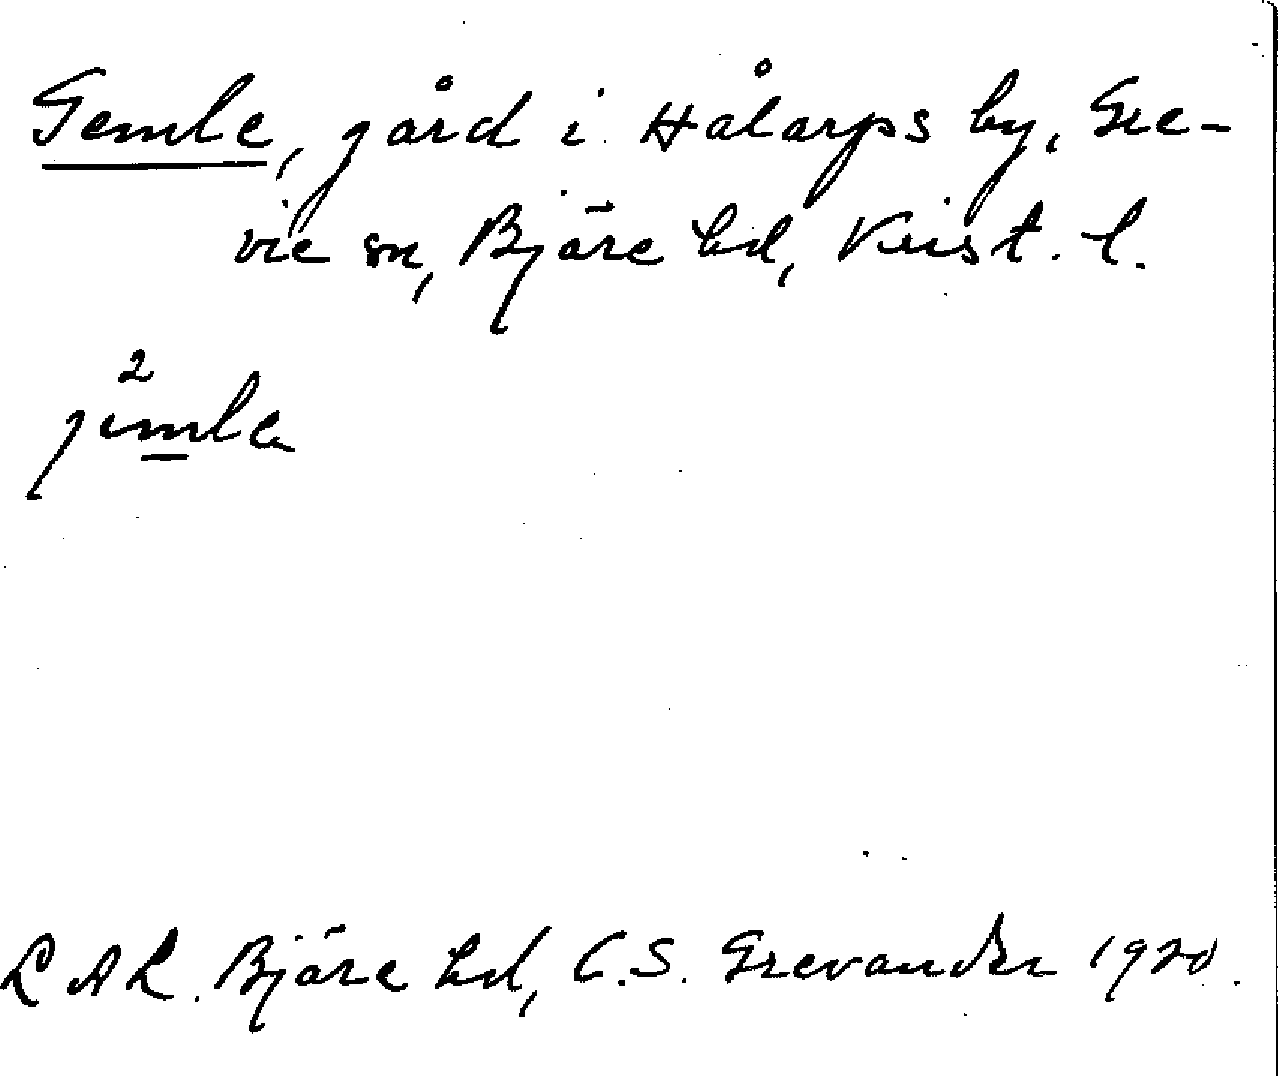 Gemle, gård i Hålarps by, Gre-
vie sn, Bjäre hd, Krist. l.
2
jimle
LAL. Bjäre hd, C.S. Grevander 1920.